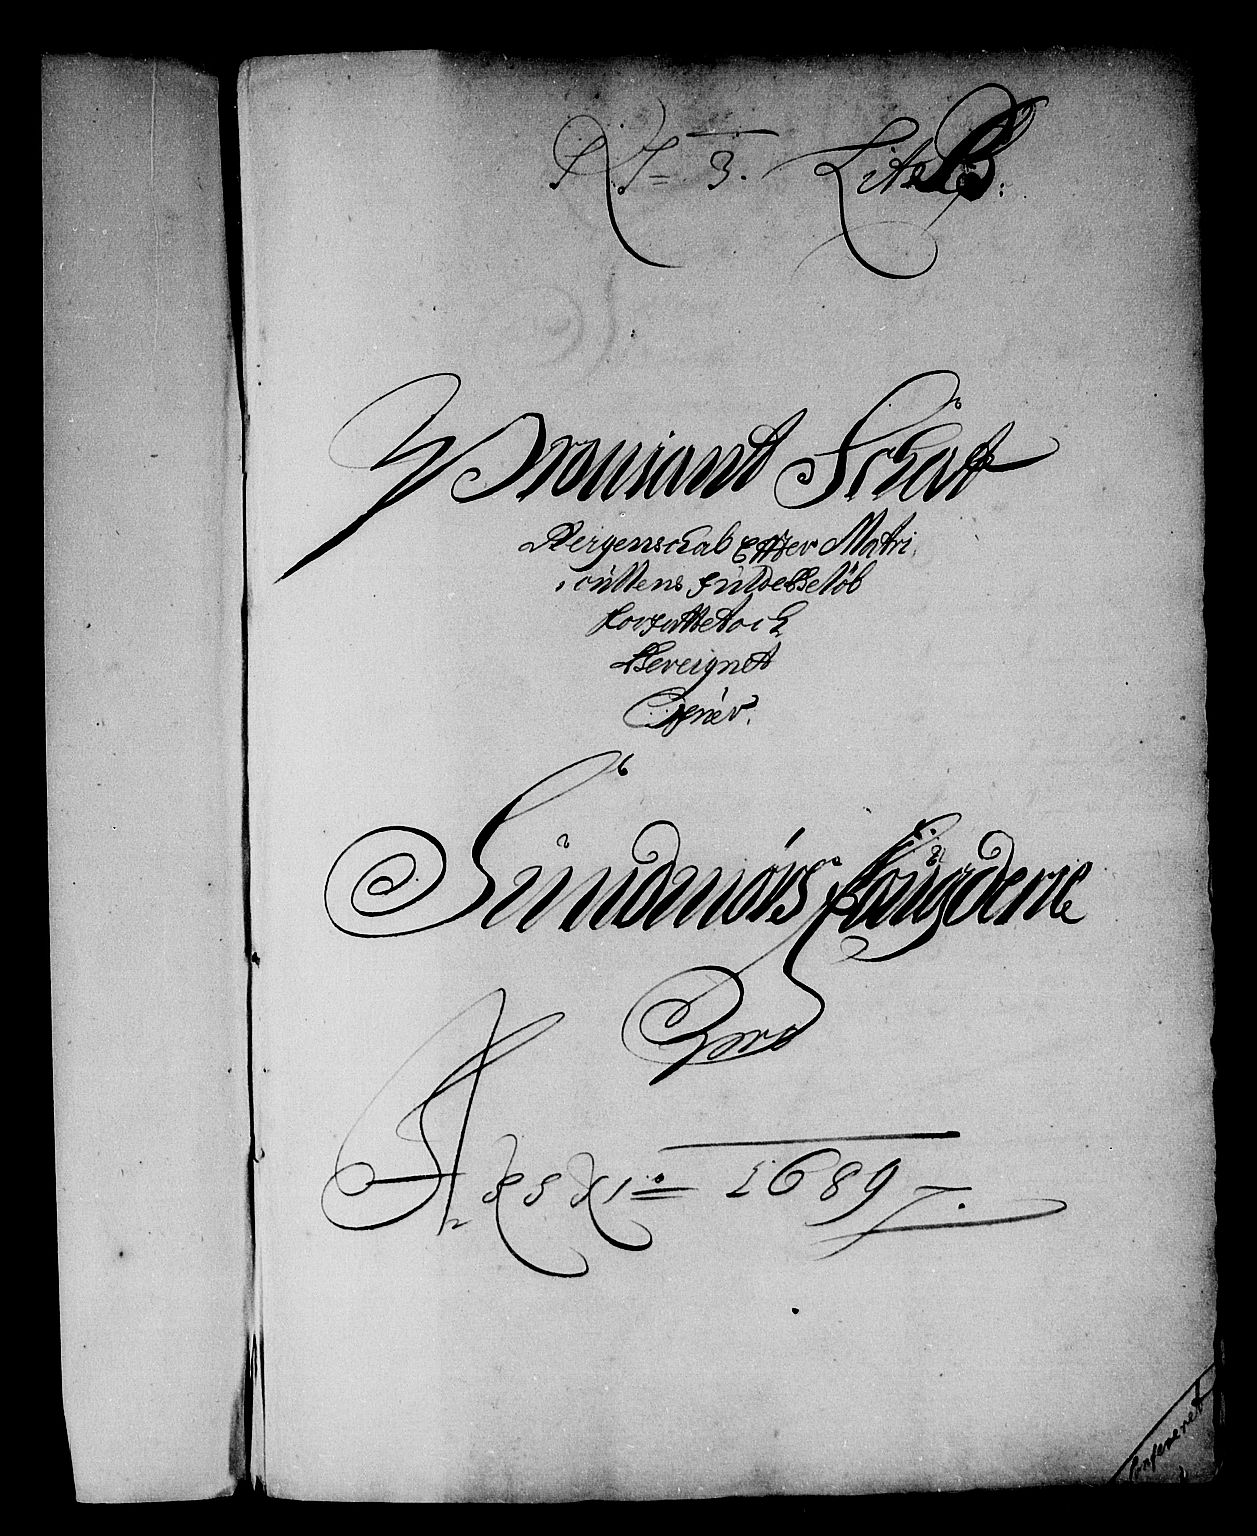 No= 3. Lit: B:
Proviant Schat
Regenschab Effter Matri,
cullens fulde Beløb
Forfattet och
Bereignet
Ofuer.
Sundmörs Fougderie
Pro
Anno 1689.